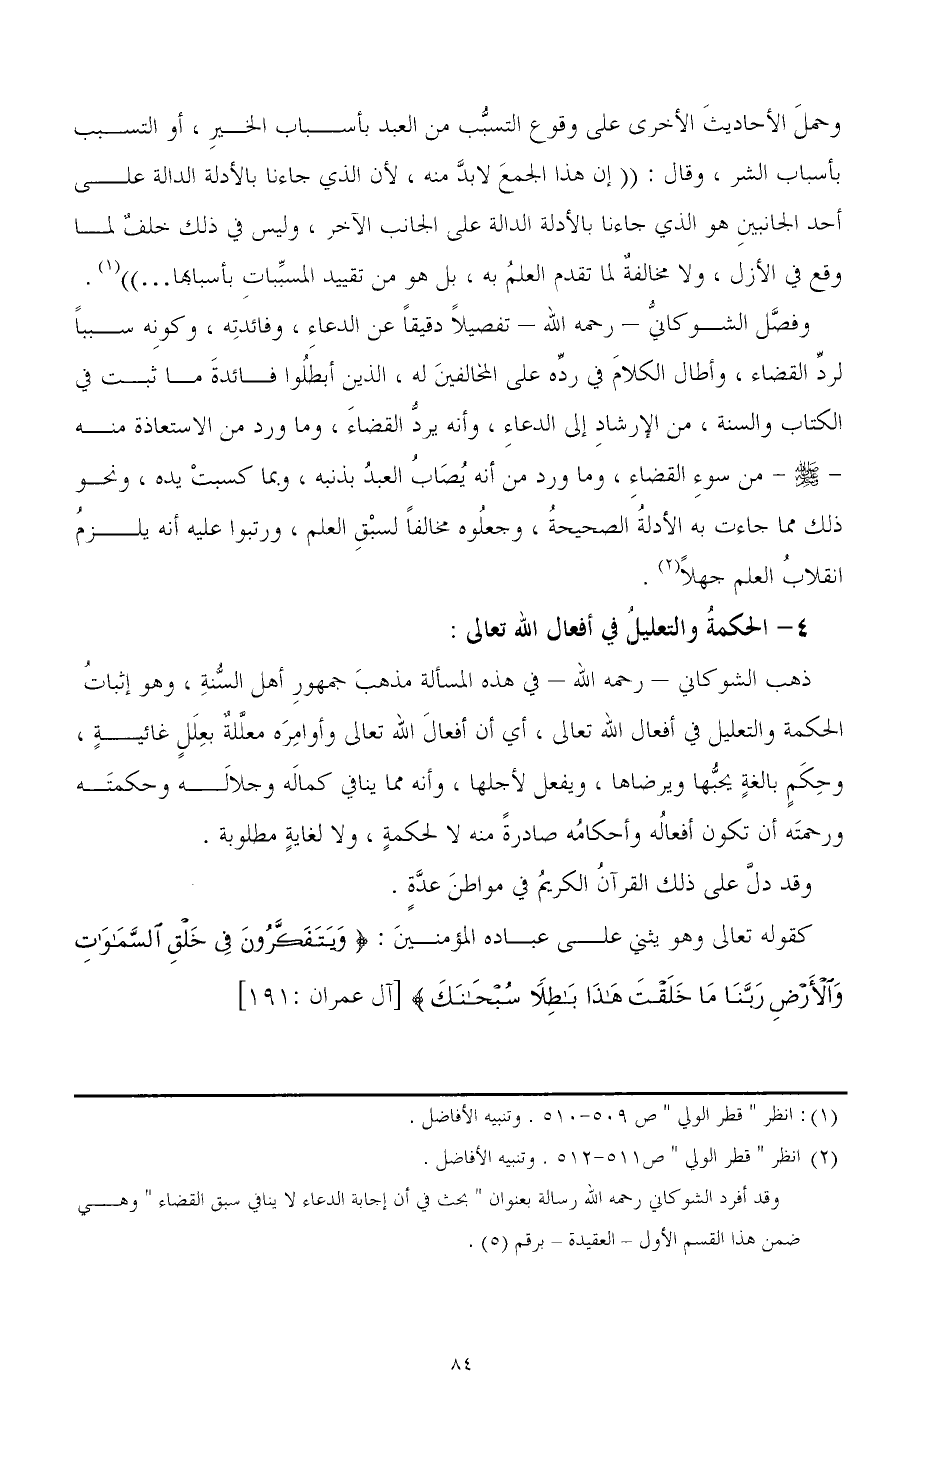 وحملَ الأحاديثَ الأخرى على وقوع التسبُّب من العبد بأسباب الخيرِ ، أو التسبب
بأسباب الشر ، وقال : (( إن هذا الجمعَ لابدَّ منه ، لأن الذي جاءنا بالأدلة الدالة على
أحد الجانبينِ هو الذي جاءنا بالأدلة الدالة على الجانب الآخر ، وليس في ذلك خلفٌ لما
وقع في الأزل ، ولا مخالفةٌ لما تقدم العلمُ به ، بل هو من تقييد المسبِّبات بأسبابها...))(١) .
وفصَّل الشوكانيُّ – رحمه الله – تفصيلاً دقيقاً عن الدعاءِ ، وفائدتِه ، وكونِه سبباً
لردِّ القضاء ، وأطال الكلامَ في ردِّه على المخالفينَ له ، الذين أبطلُوا فائدةَ ما ثبت في
الكتاب والسنة ، من الإرشادِ إلى الدعاءِ ، وأنه يردُّ القضاءَ ، وما ورد من الاستعاذة منه
– ﷺ – من سوءِ القضاءِ ، وما ورد من أنه يُصَابُ العبدُ بذنبه ، وبما كسبتْ يده ، ونحو
ذلك مما جاءت به الأدلةُ الصحيحةُ ، وجعلُوه مخالفاً لسبْقِ العلم ، ورتبوا عليه أنه يلزمُ
انقلابُ العلم جهلاً(٢) .
٤– الحكمةُ والتعليلُ في أفعال الله تعالى :
ذهب الشوكاني – رحمه الله – في هذه المسألة مذهبَ جمهورِ أهل السُّنةِ ، وهو إثباتُ
الحكمة والتعليل في أفعال الله تعالى ، أي أن أفعالَ الله تعالى وأوامِرَه معلَّلةٌ بعِلَلٍ غائيةٍ ،
وحِكَمٍ بالغةٍ يحبُّها ويرضاها ، ويفعل لأجلها ، وأنه مما ينافي كمالَه وجلالَه وحكمتَه
ورحمتَه أن تكون أفعالُه وأحكامُه صادرةً منه لا لحكمةٍ ، ولا لغايةٍ مطلوبة .
وقد دلَّ على ذلك القرآنُ الكريمُ في مواطنَ عدَّةٍ .
كقوله تعالى وهو يثني على عباده المؤمنينَ : ﴿ وَيَتَفَكَّرُونَ فِى خَلْقِ ٱلسَّمَٰوَٰتِ
وَٱلْأَرْضِ رَبَّنَا مَا خَلَقْتَ هَٰذَا بَٰطِلًا سُبْحَٰنَكَ ﴾ [آل عمران :١٩١]
(١): انظر " قطر الولي " ص ٥٠٩–٥١٠ . وتنبيه الأفاضل .
(٢) انظر " قطر الولي " ص٥١١–٥١٢ . وتنبيه الأفاضل .
وقد أفرد الشوكاني رحمه الله رسالة بعنوان " بحث في أن إجابة الدعاء لا ينافي سبق القضاء " وهي
ضمن هذا القسم الأول – العقيدة – برقم (٥) .
٨٤